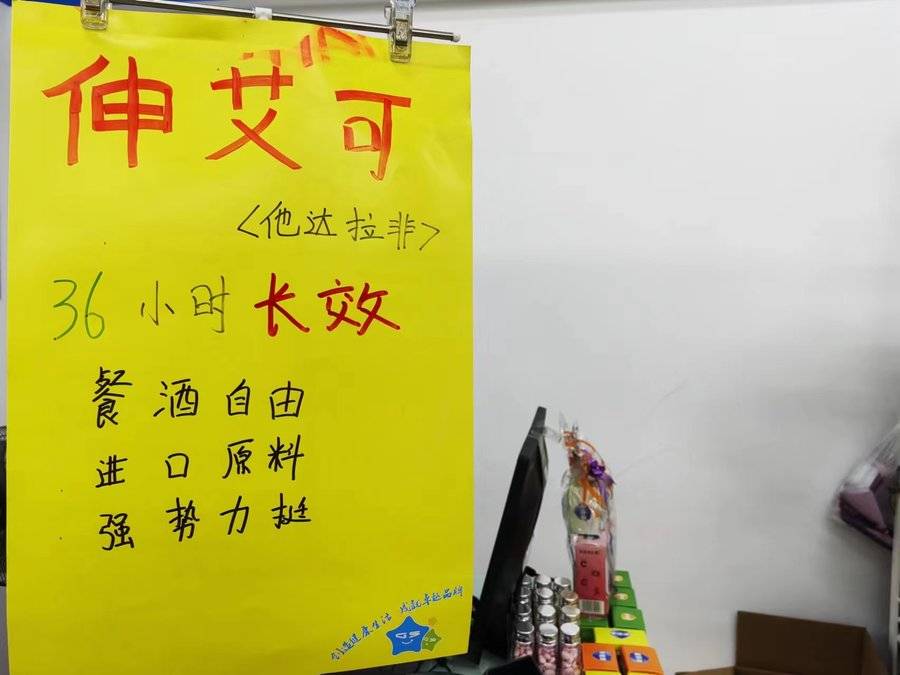 伸艾可
<他达拉非>
36小时长效
餐酒自由
进口原料
强势力挺
创造健康生活 成就卓越品牌